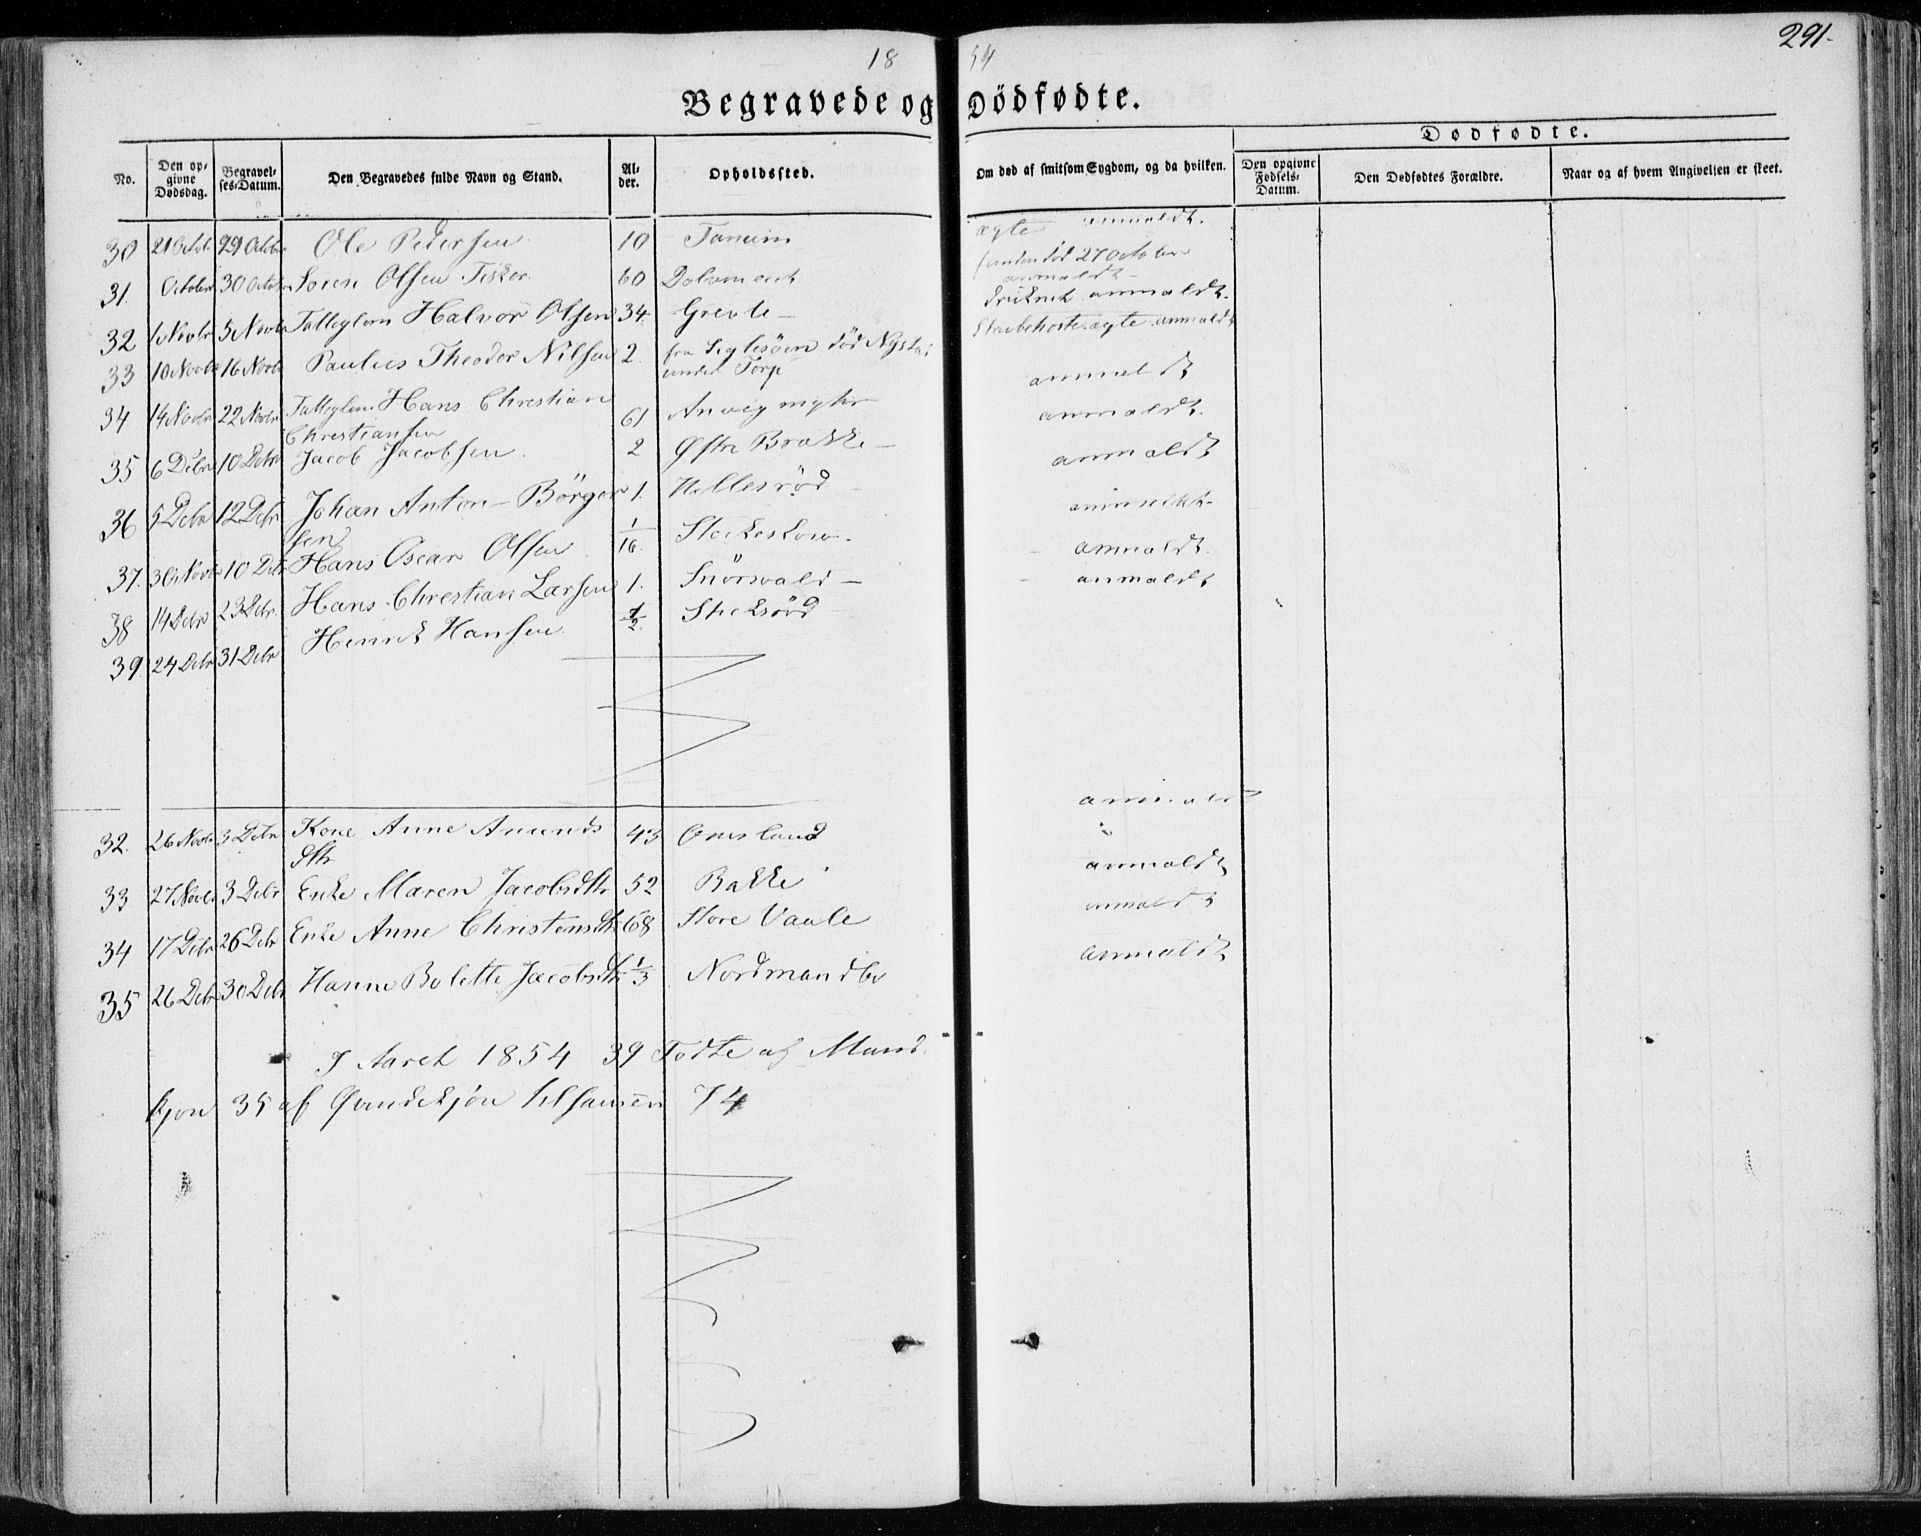 291.
18 54
Begravede og Dödfødte.
Dødfødte.
No. Den opgivne Dødsdag. Begravelses-Datum. Den Begravedes fulde Navn og Stand. Alder. Opholdssted. Om død af smitsom Sygdom, og da hvilken. Den opgivne Fødsels-Datum. Den Dødfødtes Forældre. Naar og af hvem Angivelsen er skeet.
30 21 Octobr 29 Octobr Ole Pedersen 10 Tanum ægte anmældt.
31. Octobr 30 Octobr Soren Olsen Fisker 60 funden død 27 October anmældt
32 1 Novbr 5 Novbr Halvor Olsen 34. Grevle anmældt.
33 10 Novbr 16 Novbr Paulus Theodor Nilsen 2. fra død under Torp Strubehoste ægte anmældt
34 14 Novbr 22 Novbr Hans Christian Christiansen 61 anmældt
35 6 Debr 10 Debr Jacob Jacobsen 2 Østre Brække anmældt.
36 5 Debr 12 Debr Johan Anton Börgersen 1. Hellesrød anmældt
37. 30 Novbr 10 Debr Hans Oscar Olsen 1/16. anmeldt
38 14 Debr 23 Debr Hans Christian Larsen 1. anmældt.
39. 24 Debr 31 Debr Henrik Hansen 1/2. anmældt
32. 26 Novbr 3 Debr Kone Anne Amunds dtr 43 Omsland anmældt
33 27 Novbr 3 Debr Enke Maren Jacobsdtr 52 Bakke anmældt
34 17 Debr 26 Debr Enke Anne Christensdtr 68 Store Vaale anmældt
35 26 Debr 30 Debr Hanne Bolette Jacobsdtr 1/3 Nordmandbo anmældt
I Aaret 1854 39 Födte af Mand
kjön 35 af Qvindekjön tilsammen 74